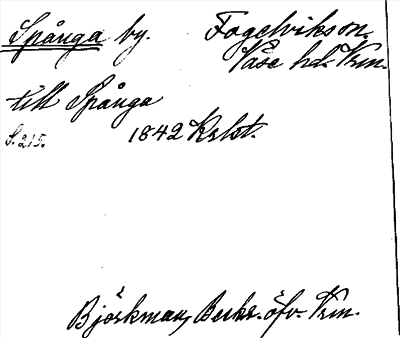 Spånga by. Fogelviks sn.
Väse hd. Vrm.
till Spånga
S. 215. 1842 Krlst.
Björkman, Beskr. öfv. Vrm.